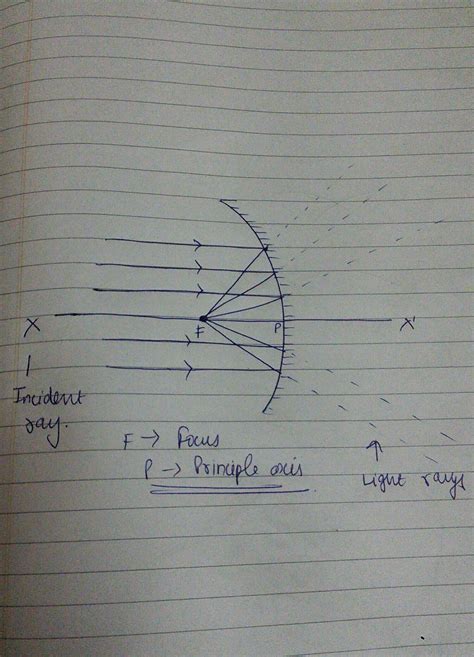 F
P
X
X'
Incident
ray.
F → Focus
P → Principle axis
Light rays